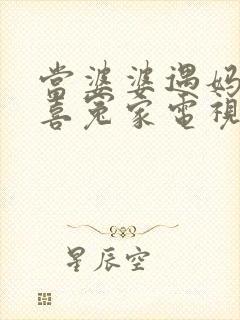 當婆婆遇媽
喜冤家電視
星辰空